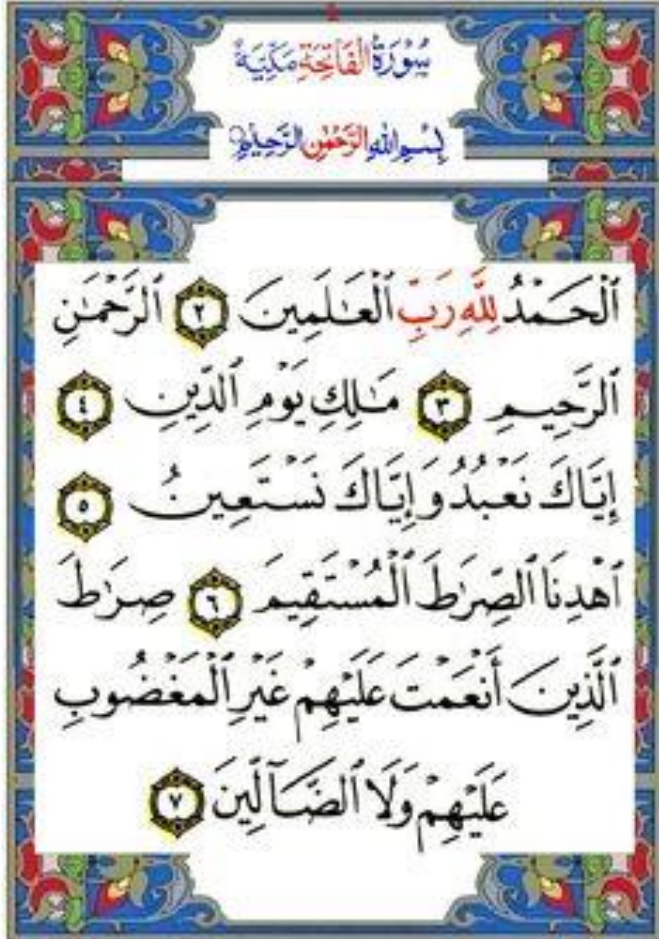 سُورَةُ الْفَاتِحَةِ مَكِّيَّةٌ
بِسْمِ اللهِ الرَّحْمٰنِ الرَّحِيْمِ
ٱلْحَمْدُ لِلَّهِ رَبِّ ٱلْعَـٰلَمِينَ ٢ ٱلرَّحْمَـٰنِ
ٱلرَّحِيمِ ٣ مَـٰلِكِ يَوْمِ ٱلدِّينِ ٤
إِيَّاكَ نَعْبُدُ وَإِيَّاكَ نَسْتَعِينُ ٥
ٱهْدِنَا ٱلصِّرَٰطَ ٱلْمُسْتَقِيمَ ٦ صِرَٰطَ
ٱلَّذِينَ أَنْعَمْتَ عَلَيْهِمْ غَيْرِ ٱلْمَغْضُوبِ
عَلَيْهِمْ وَلَا ٱلضَّآلِّينَ ٧